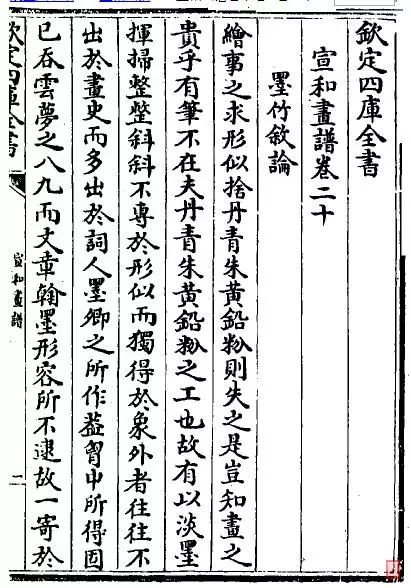 欽定四庫全書
宣和畫譜卷二十
墨竹敘論
繪事之求形似捨丹青朱黄鉛粉則失之是豈知畫之
貴乎有筆不在夫丹青朱黄鉛粉之工也故有以淡墨
揮掃整整斜斜不專於形似而獨得於象外者往往不
出於畫史而多出於詞人墨卿之所作葢胷中所得固
已吞雲夢之八九而文章翰墨形容所不逮故一寄於
欽定四庫全書
宣和畫譜
一